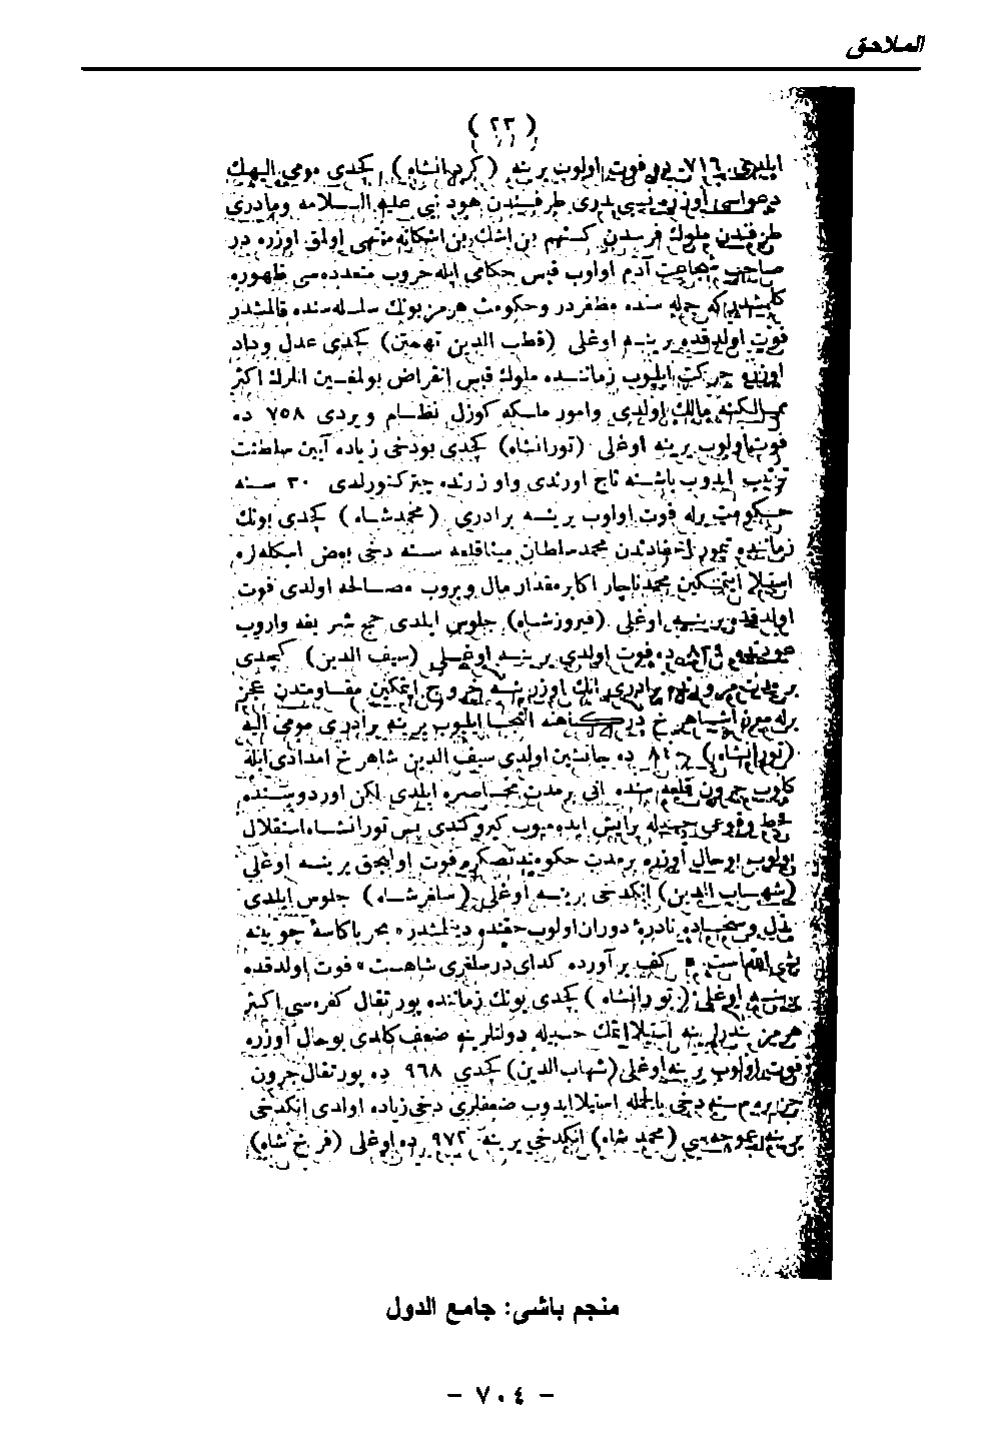 الملاحق
( ٢٣ )
ايلدى ٧١٦ ده فوت اولوب يرينه ( كردانشاه ) كچدى مومى اليهك
دعواسى اوزره نسبى پدرى طرفندن هود نبى عليه السلامه ومادرى
طرفندن ملوك فرسدن كستهم بن اشك بن اشكانه منتهى اولمق اوزره در
صاحب شجاعت آدم اولوب قيس حكامى ايله حروب متعدده سى ظهوره
كلمشدركه جمله سنده مظفر در وحكومت هرمز بونك سلسله سنده قالمشدر
فوت اولدقده يرينه اوغلى (قطب الدين تهمتن) كچدى عدل وداد
اوزره حركت ايليوب زماننده ملوك قيس انقراض بولمغين انلرك اكثر
ممالكنه مالك اولدى وامور ملكه كوزل نظام ويردى ٧٥٨ ده
فوت اولوب يرينه اوغلى (تورانشاه) كچدى بودخى زياده آيين سلطنت
ترتيب ايدوب باشنه تاج اورندى واوزرنده چتر كتورلدى ٣٠ سنه
حكومت برله فوت اولوب يرينه برادرى ( محمدشاه ) كچدى بونك
زماننده تيمور احفادندن محمد سلطان مينا قلعه سنه دخى بعض اسكله لره
استيلا ايتمكين محمد ناچار اكابر مقدار مال ويروب مصالحه اولدى فوت
اولدقده يرينه اوغلى (فيروزشاه) جلوس ايلدى حج شريفه واروب
عودتده ٨٢٩ ده فوت اولدى يرينه اوغلى (سيف الدين) كچدى
بر مدت مرورنده برادرى انك اوزرينه خروج ايتمكين مقاومتدن عجز
برله ميرزا شاهرخ دركاهنه التجا ايليوب يرينه برادرى مومى اليه
(تورانشاه) ٨٤٠ ده جانشين اولدى سيف الدين شاهرخ امدادى ايله
كلوب جرون قلعه سنده انى بر مدت محاصره ايلدى لكن اوردوسنده
قحط وقوعى حسبيله برايش ايده ميوب كيرو كندى پس تورانشاه استقلال
بولوب بوحال اوزره بر مدت حكومتدنصكره فوت اوليجق يرينه اوغلى
(شهاب الدين) انكدخى يرينه اوغلى (سلغرشاه) جلوس ايلدى
بذل وسخاده نادرهٔ دوران اولوب حقنده دينلمشدر * بحر باكاسهٔ چوبينه
* كف برآورده كداى در سلغرى شاهست * فوت اولدقده
يرينه اوغلى ( تورانشاه ) كچدى بونك زماننده پورتقال كفره سى اكثر
هرمز بندرلرينه استيلا ايتمك حسبيله دولتلرينه ضعف كلدى بوحال اوزره
فوت اولوب يرينه اوغلى (شهاب الدين) كچدى ٩٦٨ ده پورتقال جرون
جزيره سنه دخى بالجمله استيلا ايدوب ضعفلرى دخى زياده اولدى انكدخى
يرينه عموجه سى (محمد شاه) انكدخى يرينه ٩٧٢ ده اوغلى (فرخ شاه)
منجم باشى: جامع الدول
- ٧٠٤ -